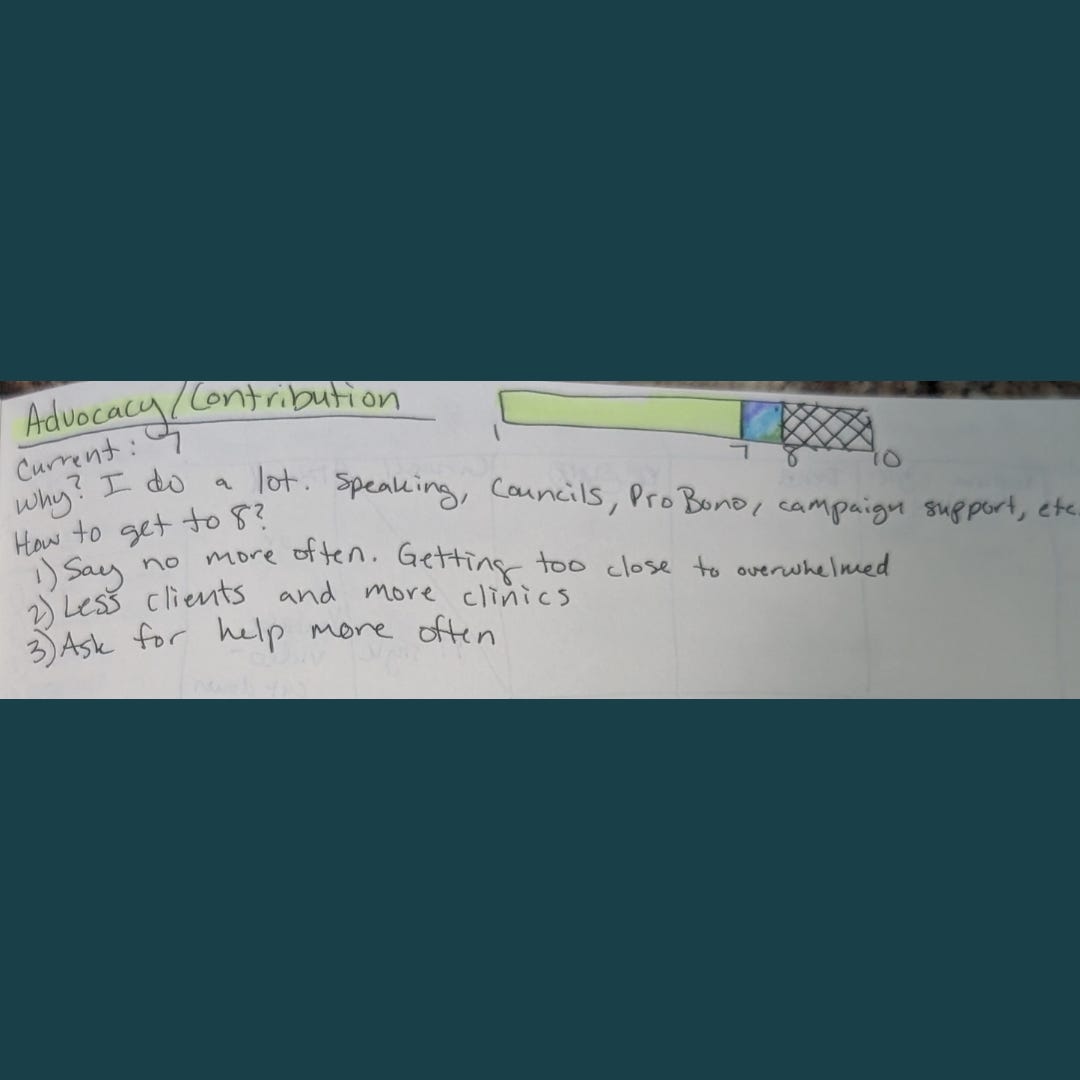 Advocacy/Contribution
1 7 8 10
Current: 7
Why? I do a lot. Speaking, Councils, Pro Bono, campaign support, etc.
How to get to 8?
1) Say no more often. Getting too close to overwhelmed
2) Less clients and more clinics
3) Ask for help more often